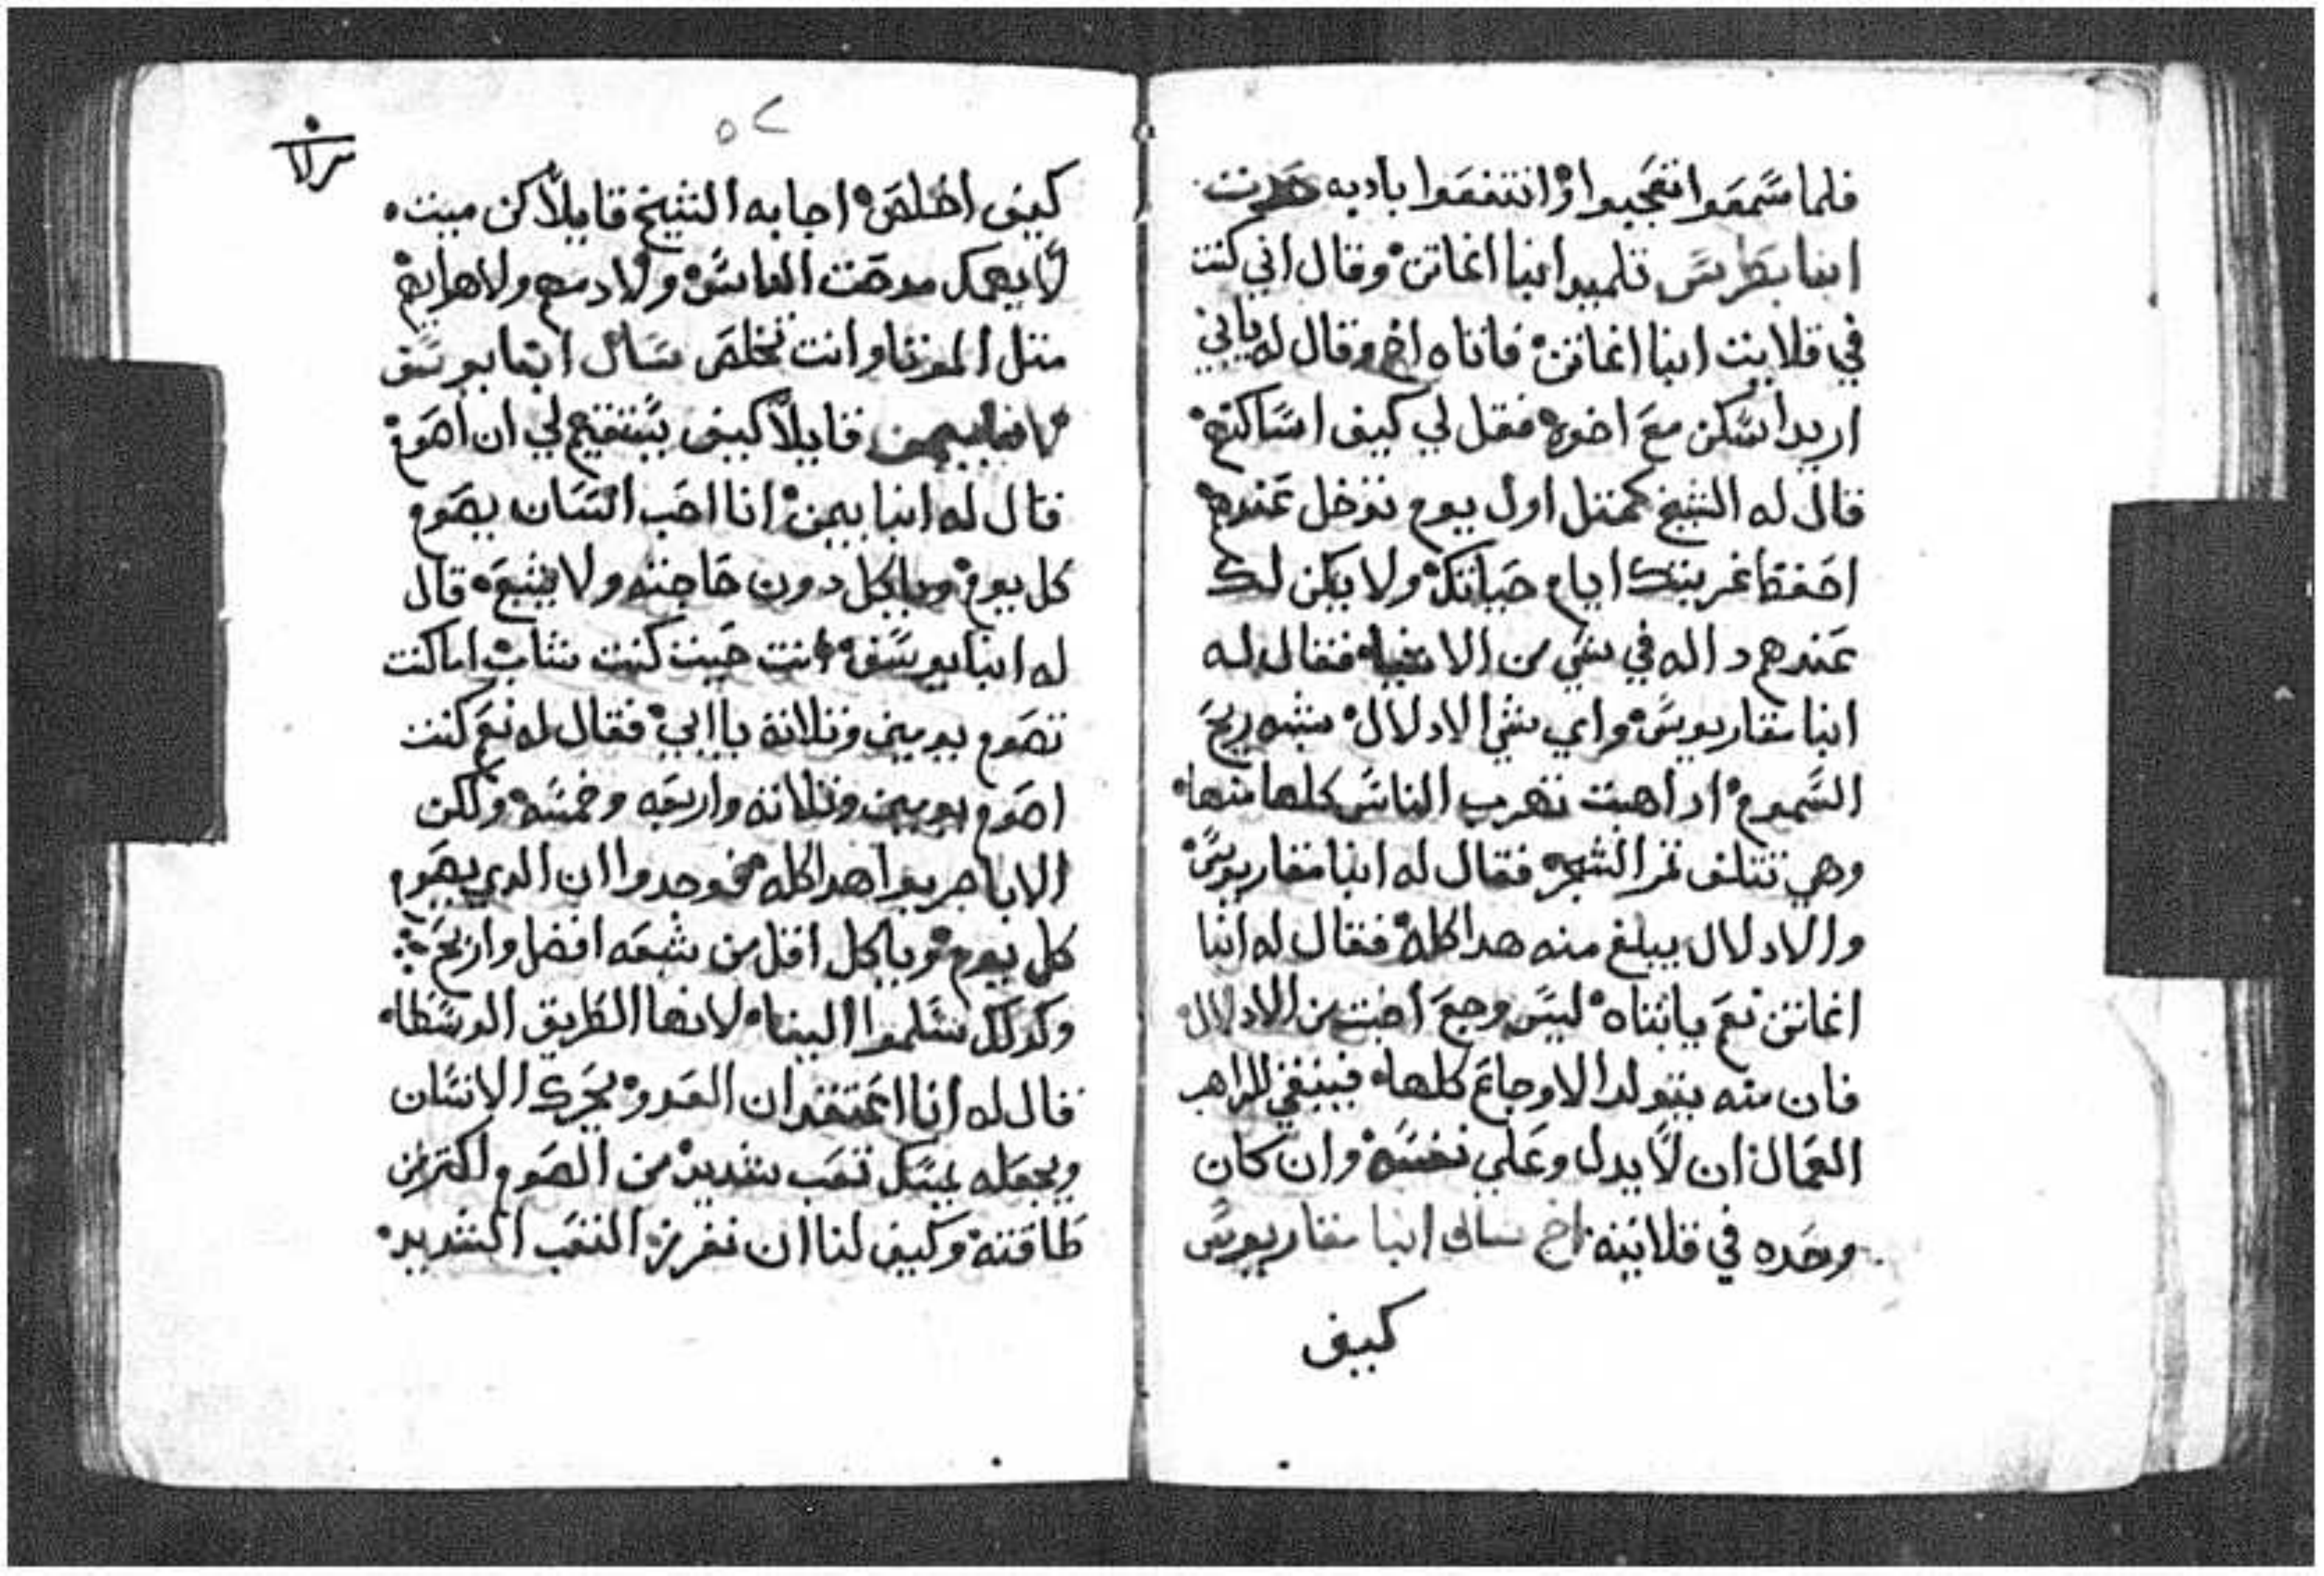 فلما سمعوا تعجبوا وانتفعوا بادبه حدث
انبا بطرس تلميد انبا اغاتن وقال اني كنت
في قلاية انبا اغاتن فاتاه اخ وقال له يا بي
اريد اسكن مع اخوه فقل لي كيف اساكنهم
قال له الشيخ كمتل اول يوم تدخل عندهم
احفظ غربتك ايام حياتك ولا يكن لك
عندهم داله في شي من الاشيا فقال له
انبا مقاريوس واي شي الادلال يشبه ريح
السموم ادا هبت تهرب الناس كلها منها
وهي تتلف تمر الشجر فقال له انبا مقاريوس
والادلال يبلغ منه هدا كله فقال له انبا
اغاتن نعم يا ابتاه ليس وجع اخبت من الادلال
فان منه يتولد الاوجاع كلها فينبغي للراهب
العمال ان لا يدل وعلي نفسه وان كان
وحده في قلايته اخ سال انبا مقاريوس
كيف
٥٢
كيف اخلص اجابه الشيخ قايلا كن ميت
لا يهمك مدحت الناس ولا دمهم ولا هوانهم
متل الموتا وانت تخلص سال انبا يوسف
لانبا بيمن قايلا كيف يستقيم لي ان اصوم
قال له انبا بيمن انا احب انسان يصوم
كل يوم وياكل دون حاجته ولا يشبع قال
له انبا يوسف وانت حيت كنت شاب اما كنت
تصوم يومين وتلاتة يا ابي فقال له نعم كنت
اصوم يومين وتلاتة واربعه وخمسه ولكن
الابا جربوا هدا كله فوجدوا ان الدي يصوم
كل يوم وياكل اقل من شبعه افضل واربح
وكدلك سلموا الينا لانها الطريق الوسطا
قال له انا اعتقد ان العدو يحرك الانسان
ويجعله يمسك تعب شديد من الصوم اكتر من
طاقته وكيف لنا ان نفرز التعب الشديد